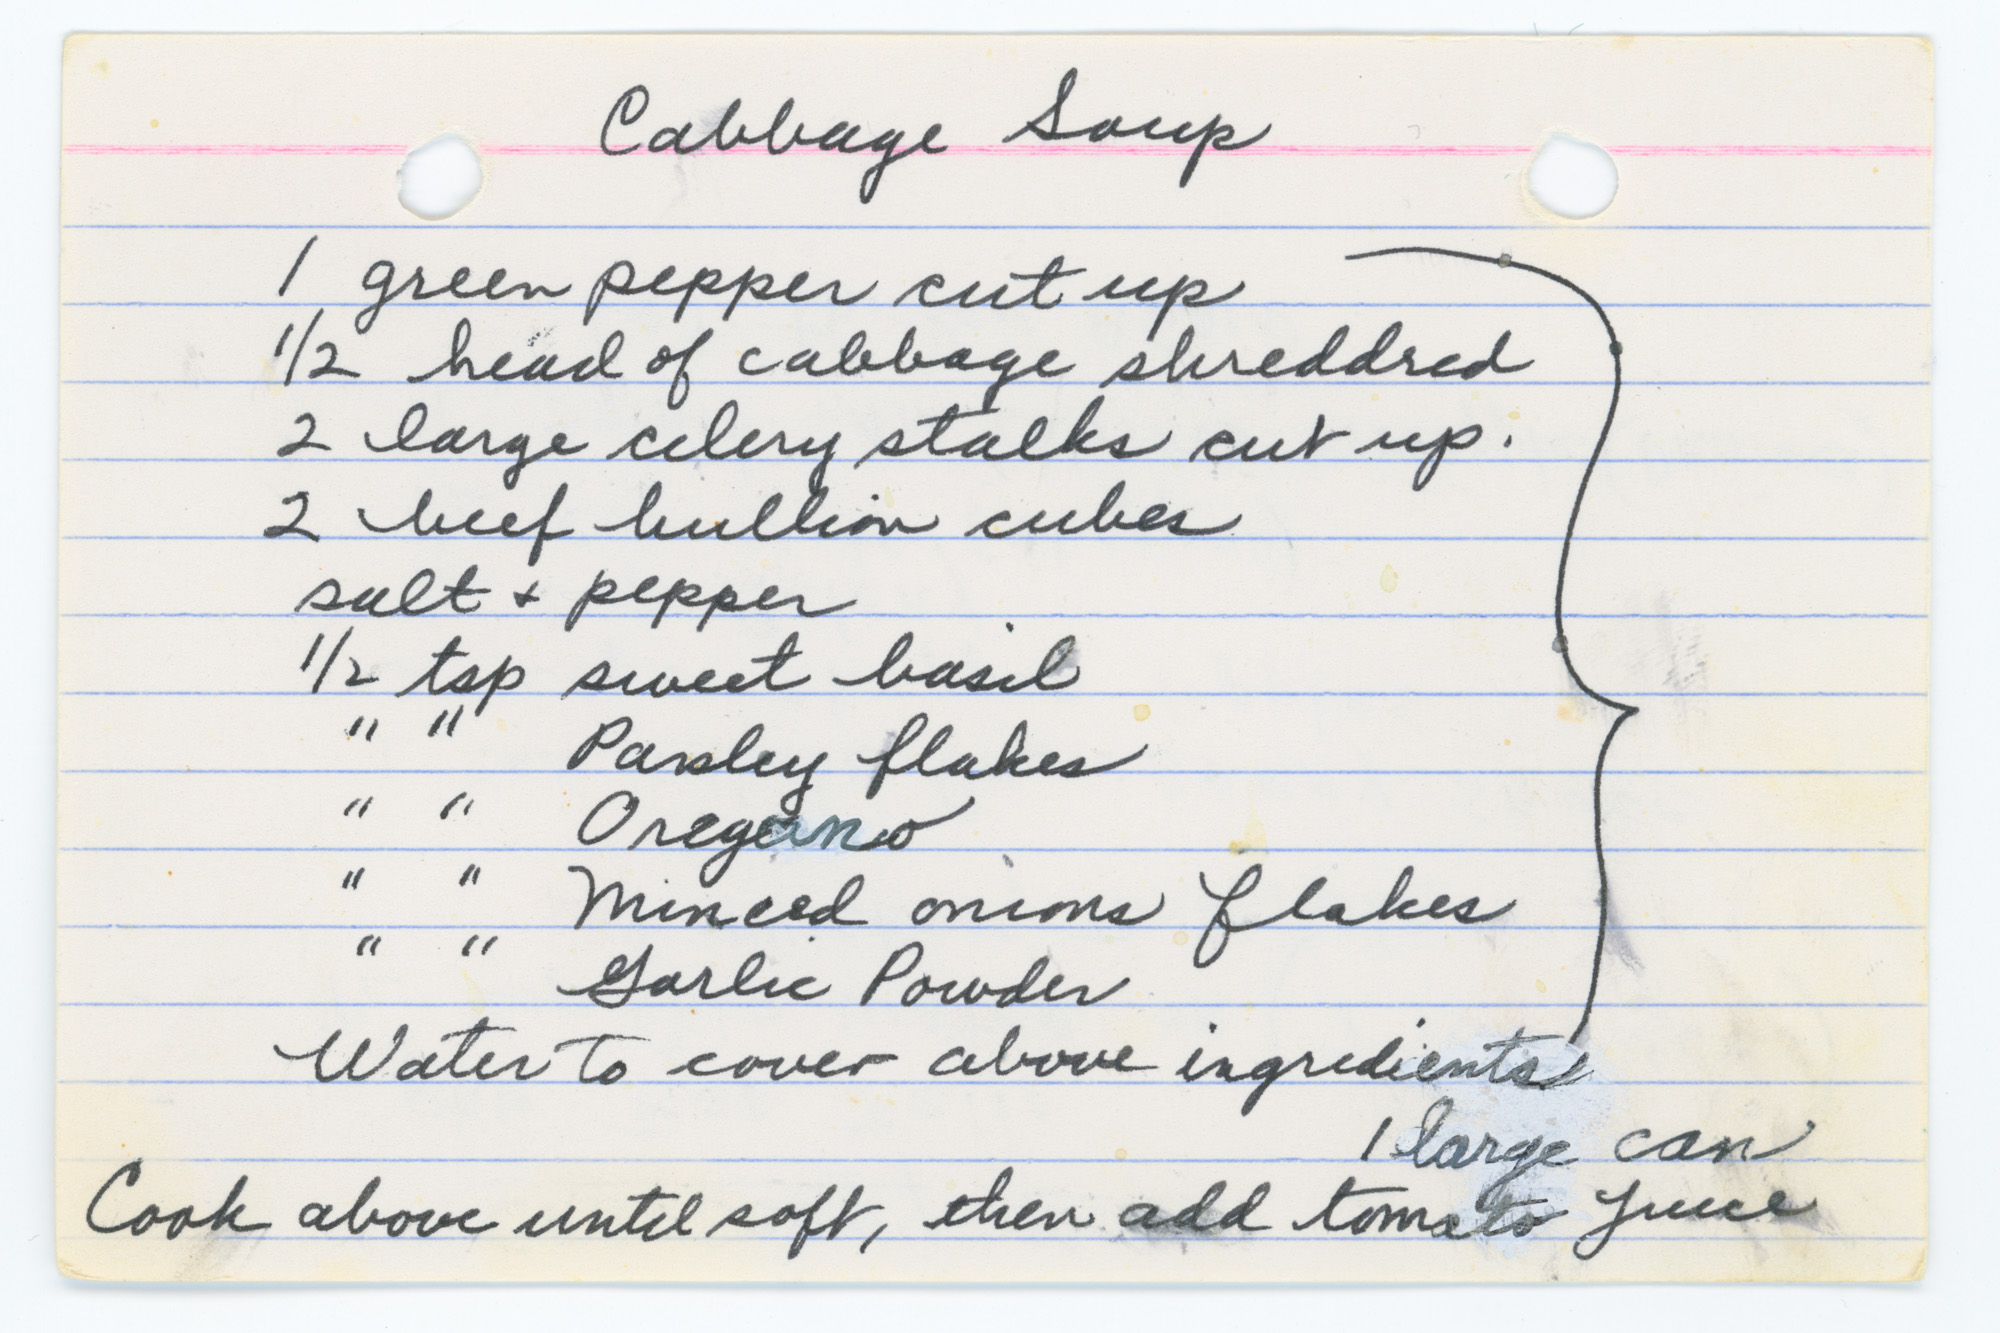 Cabbage Soup
1 green pepper cut up
1/2 head of cabbage shreddred
2 large celery stalks cut up.
2 beef bullion cubes
salt + pepper
1/2 tsp sweet basil
" " Parsley flakes
" " Oregano
" " Minced onions flakes
" " Garlic Powder
Water to cover above ingredients
1 large can
Cook above until soft, then add tomato juice